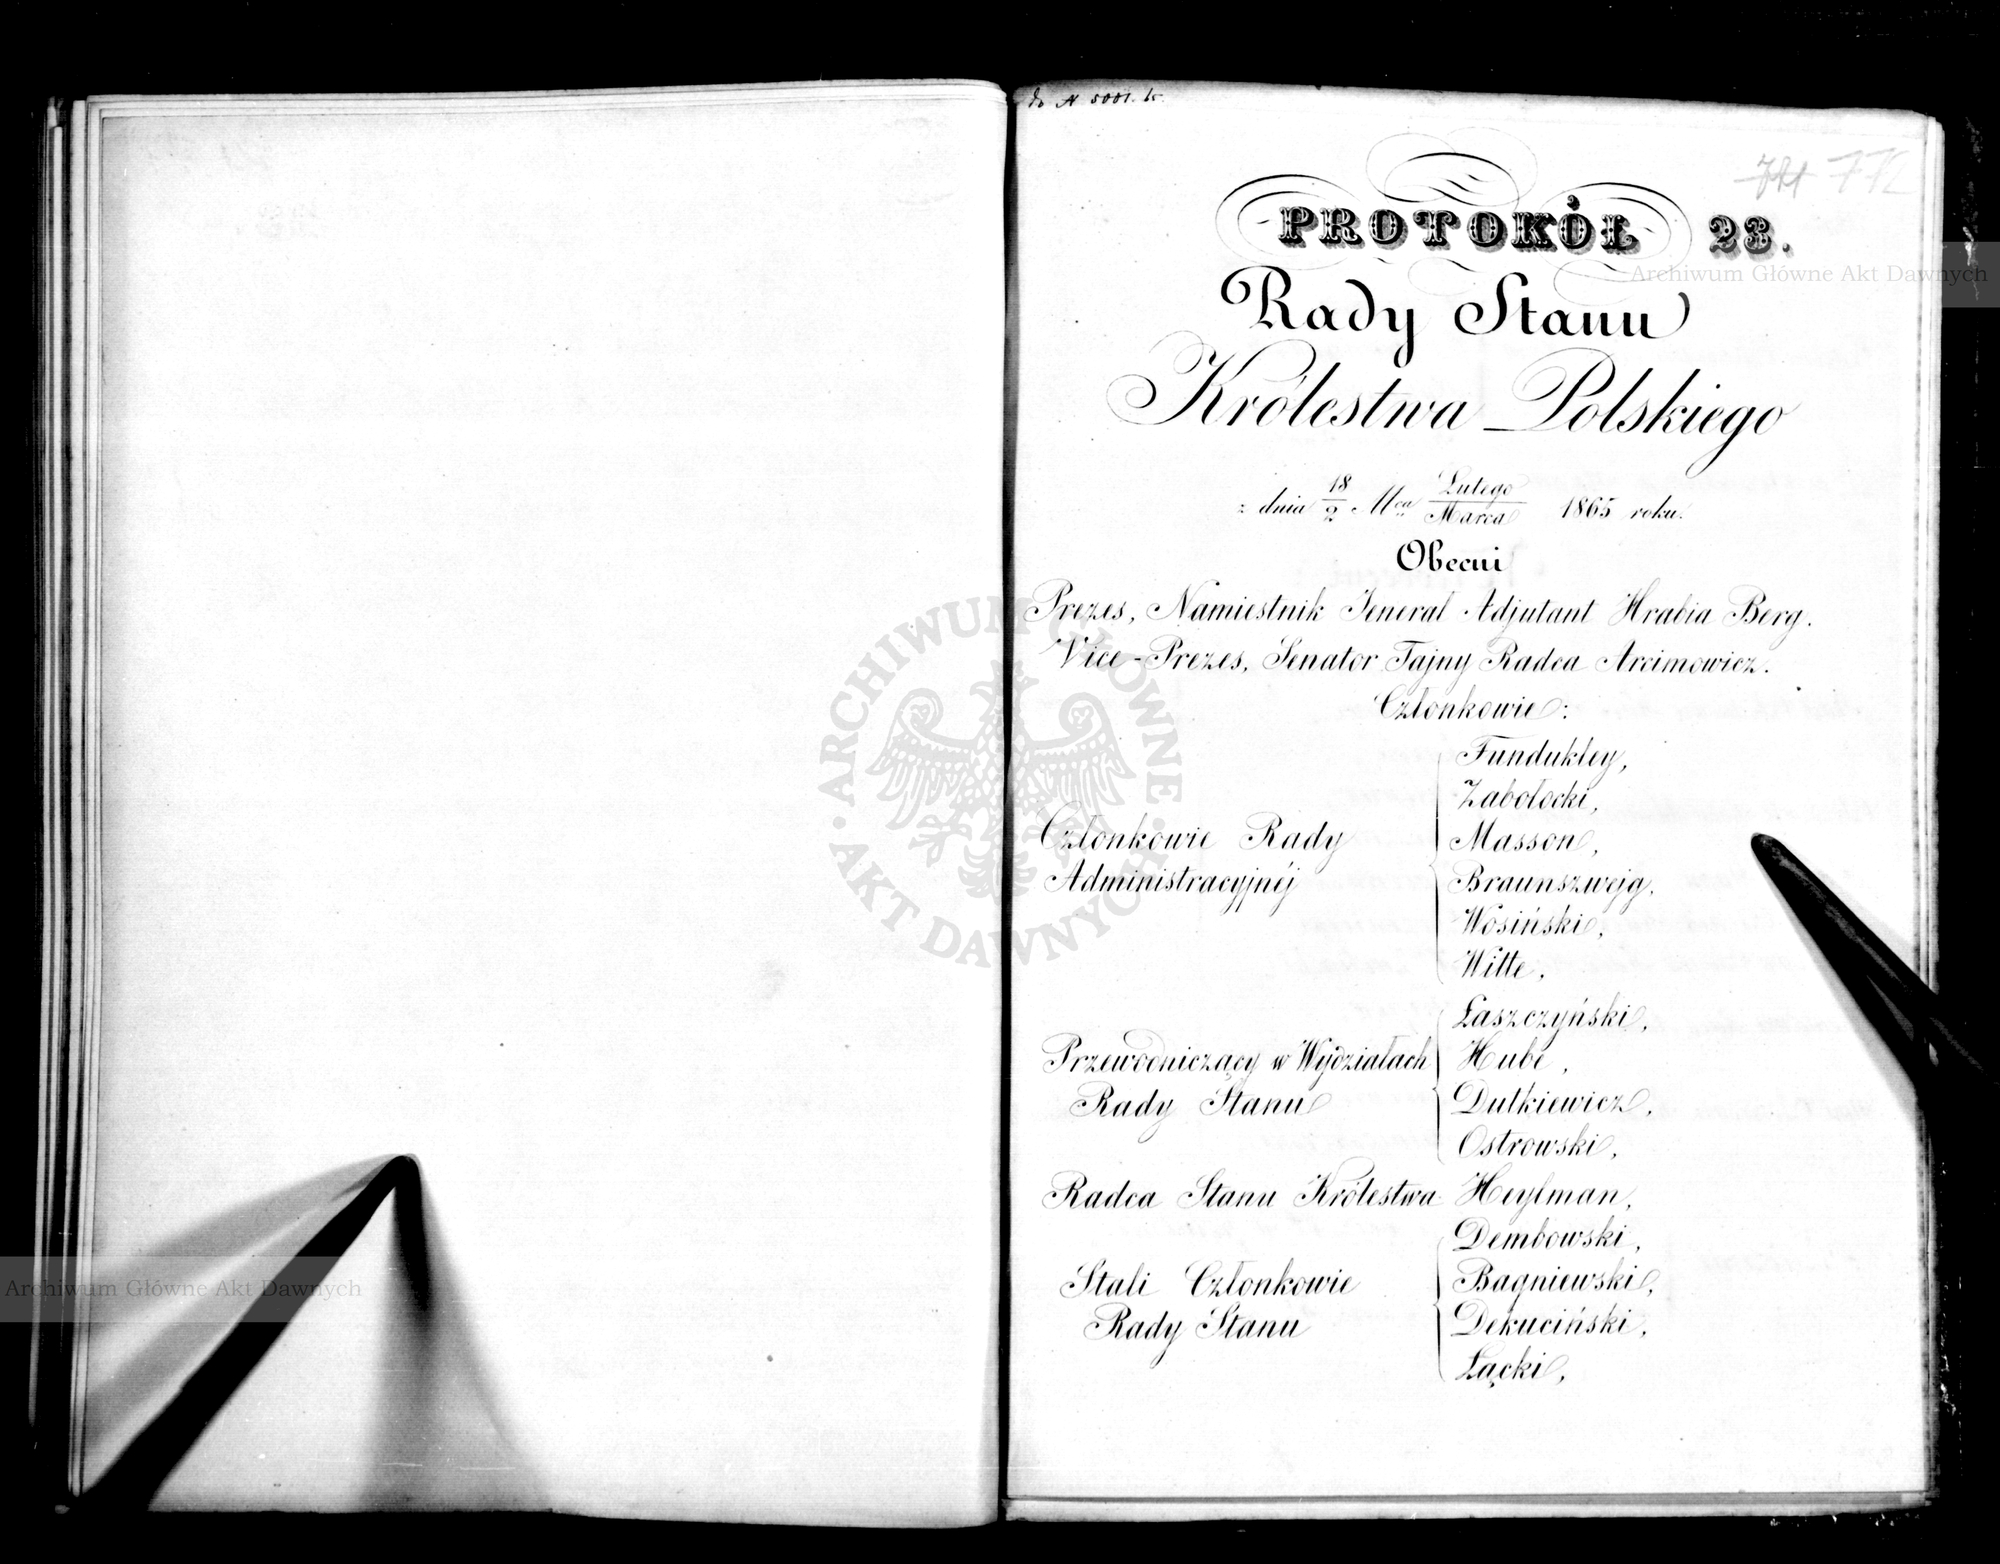 do N 5001. b.
771 772
PROTOKÓŁ 23.
Rady Stanu
Królestwa Polskiego
z dnia 18/2 Mca Lutego/Marca 1865 roku.
Obecni
Prezes, Namiestnik Jenerał Adjutant Hrabia Berg.
Vice-Prezes, Senator Tajny Radca Arcimowicz.
Członkowie:
Członkowie Rady Administracyjnéj
Fundukley,
Zabołocki,
Masson,
Braunszwejg,
Wosiński,
Witte,
Przewodniczący w Wydziałach
Rady Stanu
Łaszczyński,
Hube,
Dutkiewicz,
Ostrowski,
Radca Stanu Królestwa Heylman,
Stali Członkowie
Rady Stanu
Dembowski,
Bagniewski,
Dekuciński,
Łącki,
Archiwum Główne Akt Dawnych
ARCHIWUM GŁÓWNE · AKT DAWNYCH ·
Archiwum Główne Akt Dawnych